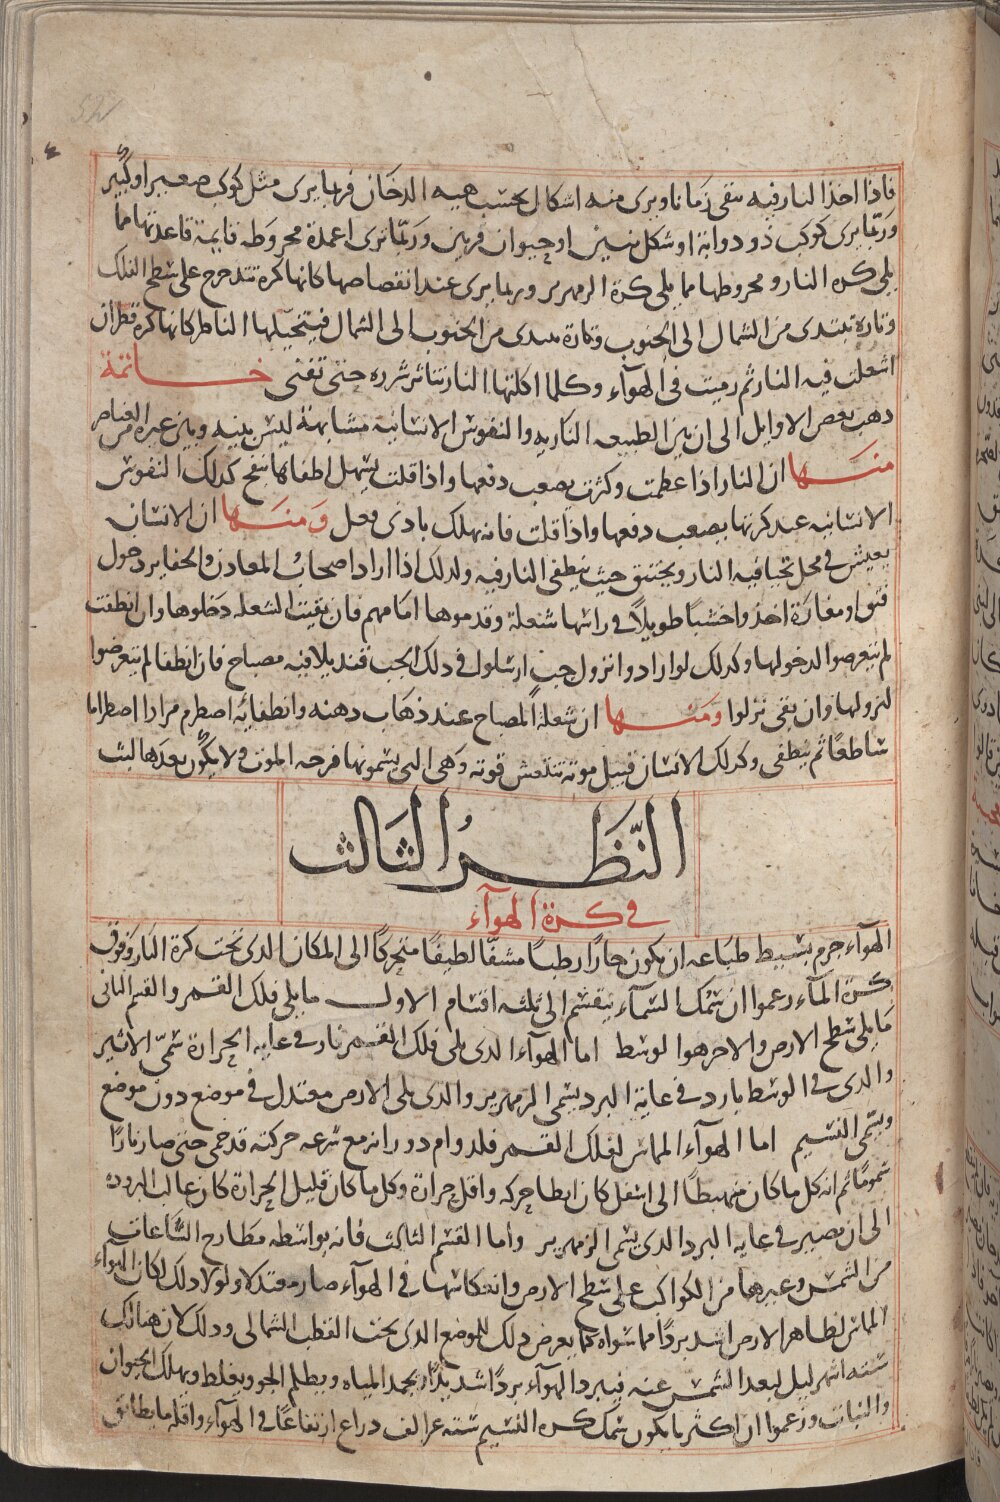 فاذا اخذ النار فيه يبقى زمانا ويرى منه اشكال بحسب هيه الدخان فربما يرى مثل كوكب صغير او كبير
وربّما يرى كوكب ذو دوابة او شكل تنين او حيوان قرنين وربّما ترى اعمدة مخروطه قايمة قاعدتها مما
يلى كره النار ومخروطها مما يلى كرة الزمهرير وربما يرى عند انقصاصها كانها كرة تتدحرج على سطح الفلك
وتارة تبتدى من الشمال الى الجنوب وتارة تبتدى من الجنوب الى الشمال فيتخيّلها الناظر كانها كرة قطران
اشعلت فيه النار ثم رميت فى الهوآء وكلما اكلتها النار تناثر شرره حتى تفنى خاتمة
ذهب بعض الاوايل الى ان بين الطبيعه الناريه والنفوس الانسانيه مشابهة ليس بينه وبين غيره من العناصر
منها ان النار اذا عظمت وكثرت يصعب دفعها واذا قلت يسهل اطفاها بنفخ كذلك النفوس
الانسانيه عند كثرتها يصعب دفعها واذا قلت فانه يهلك بادى فعل ومنها ان الانسان
يعيش فى محل تحيا فيه النار ويختنق حيث ينطفى النار فيه ولذلك اذا اراد اصحاب المعادن والحفاير دخول
فتق او مغارة اخذوا خشبا طويلاً فى راسها شعلة وقدموها امامهم فان بقيت الشعله دخلوها وان انطفت
لم يتعرضوا لدخولها وكذلك لو ارادوا نزول جب ارسلوا فى ذلك الجب قنديلا فيه مصباح فان انطفا لم يتعرضوا
لنزولها وان بقى نزلوا ومنها ان شعلة المصباح عند ذهاب دهنه وانطفايه اضطرم مرارا اضطراما
ساطعًا ثم ينطفى وكذلك الانسان قبيل موته تنتعش قوته وهى التى يسمونها فرحه الموت ولا يكون بعدها لبث
النّظر الثالث
فى كرة الهوآء
الهوآء جرم بسيط طباعه ان يكون حارًا رطبا مشفّا لطيفًا متحركًا الى المكان الذى تحت كرة النار وفوق
كرة المآء زعموا ان سمك السمآء ينقسم الى ثلثه اقسام الاول ما يلى فلك القمر والقسم الثانى
ما يلى سطح الارض والاخر هو الوسط اما الهوآء الذى يلى فلك القمر نار فى غايه الحرارة سمّى الاثير
والذى فى الوسط بارد فى غاية البرد يسمى الزمهرير والذى يلى الارض معتدل فى موضع دون موضع
ويسمى النسيم اما الهوآء المماس لفلك القمر فلدوام دورانه مع سرعه حركته قد حمى حتى صار نارًا
سمومًا ثم انه كل ما كان منهبطًا الى اسفل كان ابطا حركه واقل حرارة وكل ما كان قليل الحرارة كان غالب البروده
الى ان يصير فى غايه البرد الذى يسمى الزمهرير وأما القسم الثالث فانه بواسطه مطارح الشّاعات
من الشمس وغيرها من الكواكب على سطح الارض وانعكاسها فى الهوآء صار معتدلا ولولا ذلك لكان الهواء
المماس لظاهر الارض اشد بردًا مما سواه كما يعرض ذلك للموضع الذى تحت القطب الشمالى وذلك لان هنالك
سته اشهر ليل لبعد الشمس عنه فيبرد الهوآء بردًا شديدًا ويجمد المياه ويظلم الجو ويغلظ ويهلك الحيوان
والنبات وزعموا ان اكثر ما يكون سمك كره النسيم سته عر الف ذراع ارتفاعًا فى الهوآء واقله ما يطابق